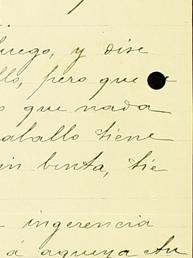 luego, y dise
llo, pero que
o que nada
aballo tiene
in binta, tie
ingerencia
á aqueya